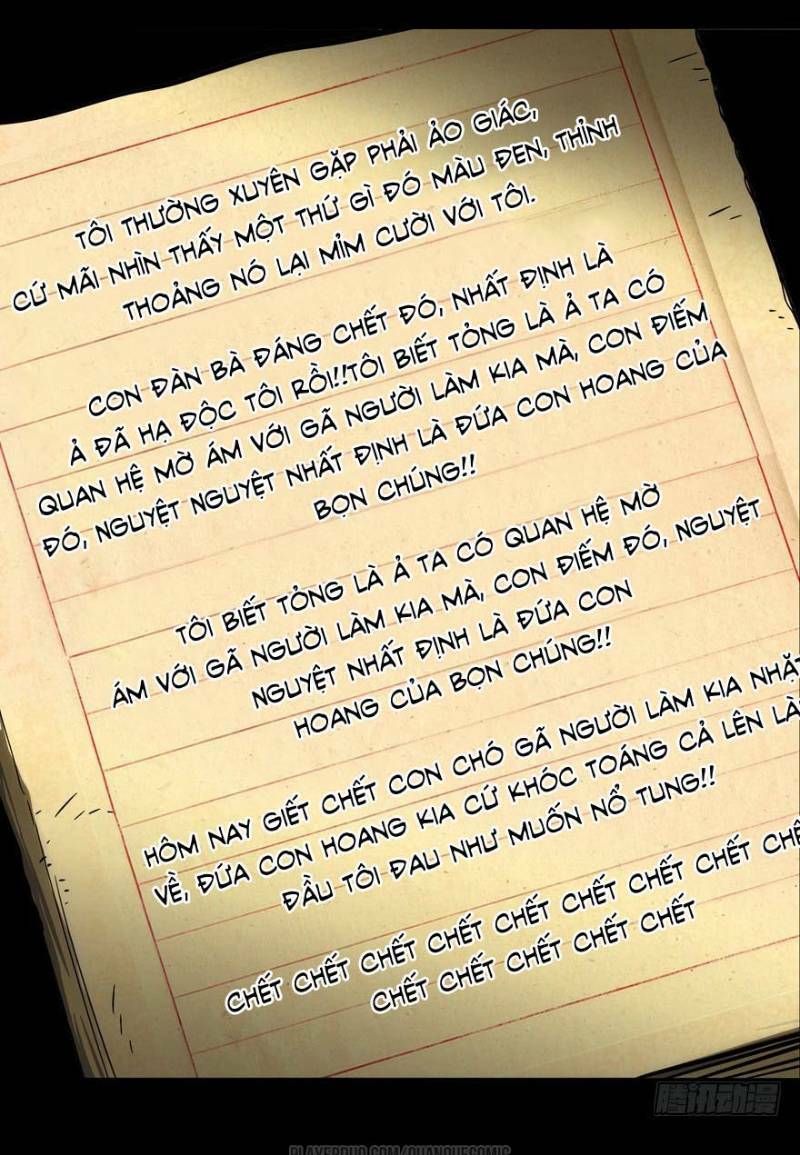 TÔI THƯỜNG XUYÊN GẶP PHẢI ẢO GIÁC,
CỨ MÃI NHÌN THẤY MỘT THỨ GÌ ĐÓ MÀU ĐEN, THỈNH
THOẢNG NÓ LẠI MỈM CƯỜI VỚI TÔI.
CON ĐÀN BÀ ĐÁNG CHẾT ĐÓ, NHẤT ĐỊNH LÀ
Ả ĐÃ HẠ ĐỘC TÔI RỒI!!TÔI BIẾT TỎNG LÀ Ả TA CÓ
QUAN HỆ MỜ ÁM VỚI GÃ NGƯỜI LÀM KIA MÀ, CON ĐIẾM
ĐÓ, NGUYỆT NGUYỆT NHẤT ĐỊNH LÀ ĐỨA CON HOANG CỦA
BỌN CHÚNG!!
TÔI BIẾT TỎNG LÀ Ả TA CÓ QUAN HỆ MỜ
ÁM VỚI GÃ NGƯỜI LÀM KIA MÀ, CON ĐIẾM ĐÓ, NGUYỆT
NGUYỆT NHẤT ĐỊNH LÀ ĐỨA CON
HOANG CỦA BỌN CHÚNG!!
HÔM NAY GIẾT CHẾT CON CHÓ GÃ NGƯỜI LÀM KIA NHẶT
VỀ, ĐỨA CON HOANG KIA CỨ KHÓC TOÁNG CẢ LÊN LÀ
ĐẦU TÔI ĐAU NHƯ MUỐN NỔ TUNG!!
CHẾT CHẾT CHẾT CHẾT CHẾT CHẾT CHẾT CHẾT CHẾ
CHẾT CHẾT CHẾT CHẾT CHẾT
腾讯动漫